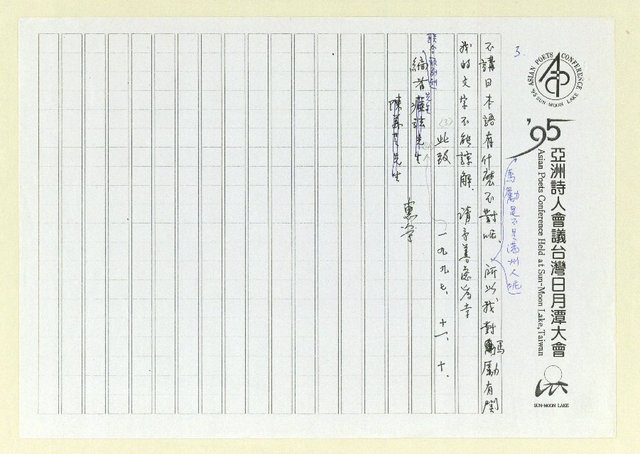 ASIAN POETS CONFERENCE
'95 SUN-MOON LAKE
'95 亞洲詩人會議台灣日月潭大會
Asian Poets Conference Held at Sun-Moon Lake, Taiwan
SUN-MOON LAKE
3.
馬勵是不是滿州人呢
不講日本語有什麼不對呢、所以我對馬勵有関
我的文字不能諒解、請予善處為幸
(3)此致
先生
編者瘂弦先生
陳義芝先生
惠学
一九九七、十一、十、